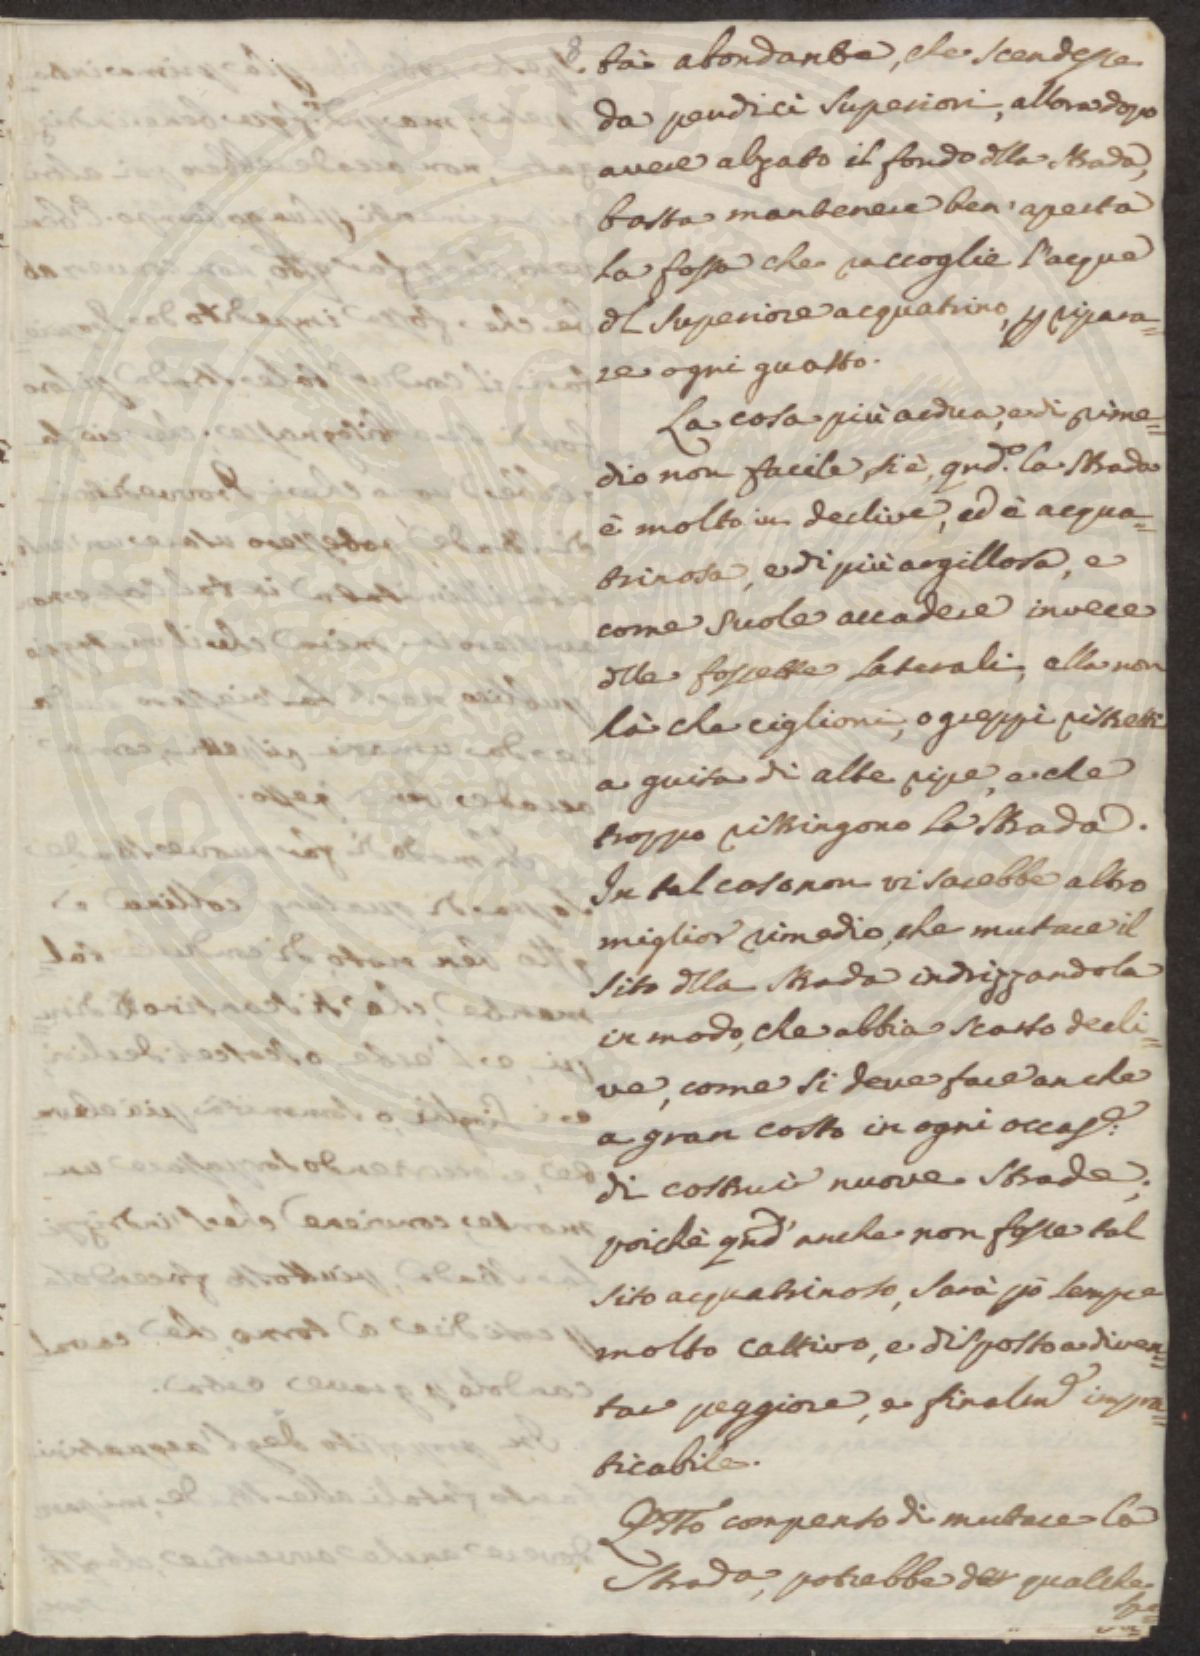 8.
tà abondante, che scendesse
da pendici superiori, allora dopo
avere alzato il fondo dlla strada,
basta mantenere ben' aperta
la fossa che raccoglie l'acque
dl superiore acquatrino, p ripara=
re ogni guasto.
La cosa più ardua, e di rime=
dio non facile, si è, qnd.º la strada
è molto in declive, ed è acqua=
trinosa, e di più argillosa, e
come suole accadere invece
dlle fossette laterali, ella non
hà che ciglioni, o greppi ristretti
a guisa di alte ripe, e che
troppo ristringono la strada.
In tal caso non vi sarebbe altro
miglior rimedio, che mutare il
sito dlla strada indrizzandola
in modo, che abbia scarso decli=
ve, come si deve fare anche
a gran costo in ogni occas.e:
di costruir nuove strade;
poichè qnd' anche non fosse tal
sito acquatrinoso, sarà pò sempre
molto cattivo, e disposto a diven=
tar peggiore, e finalm.e impra=
ticabile.
Qsto compenso di mutare la
strada, potrebbe dar qualche
spe=